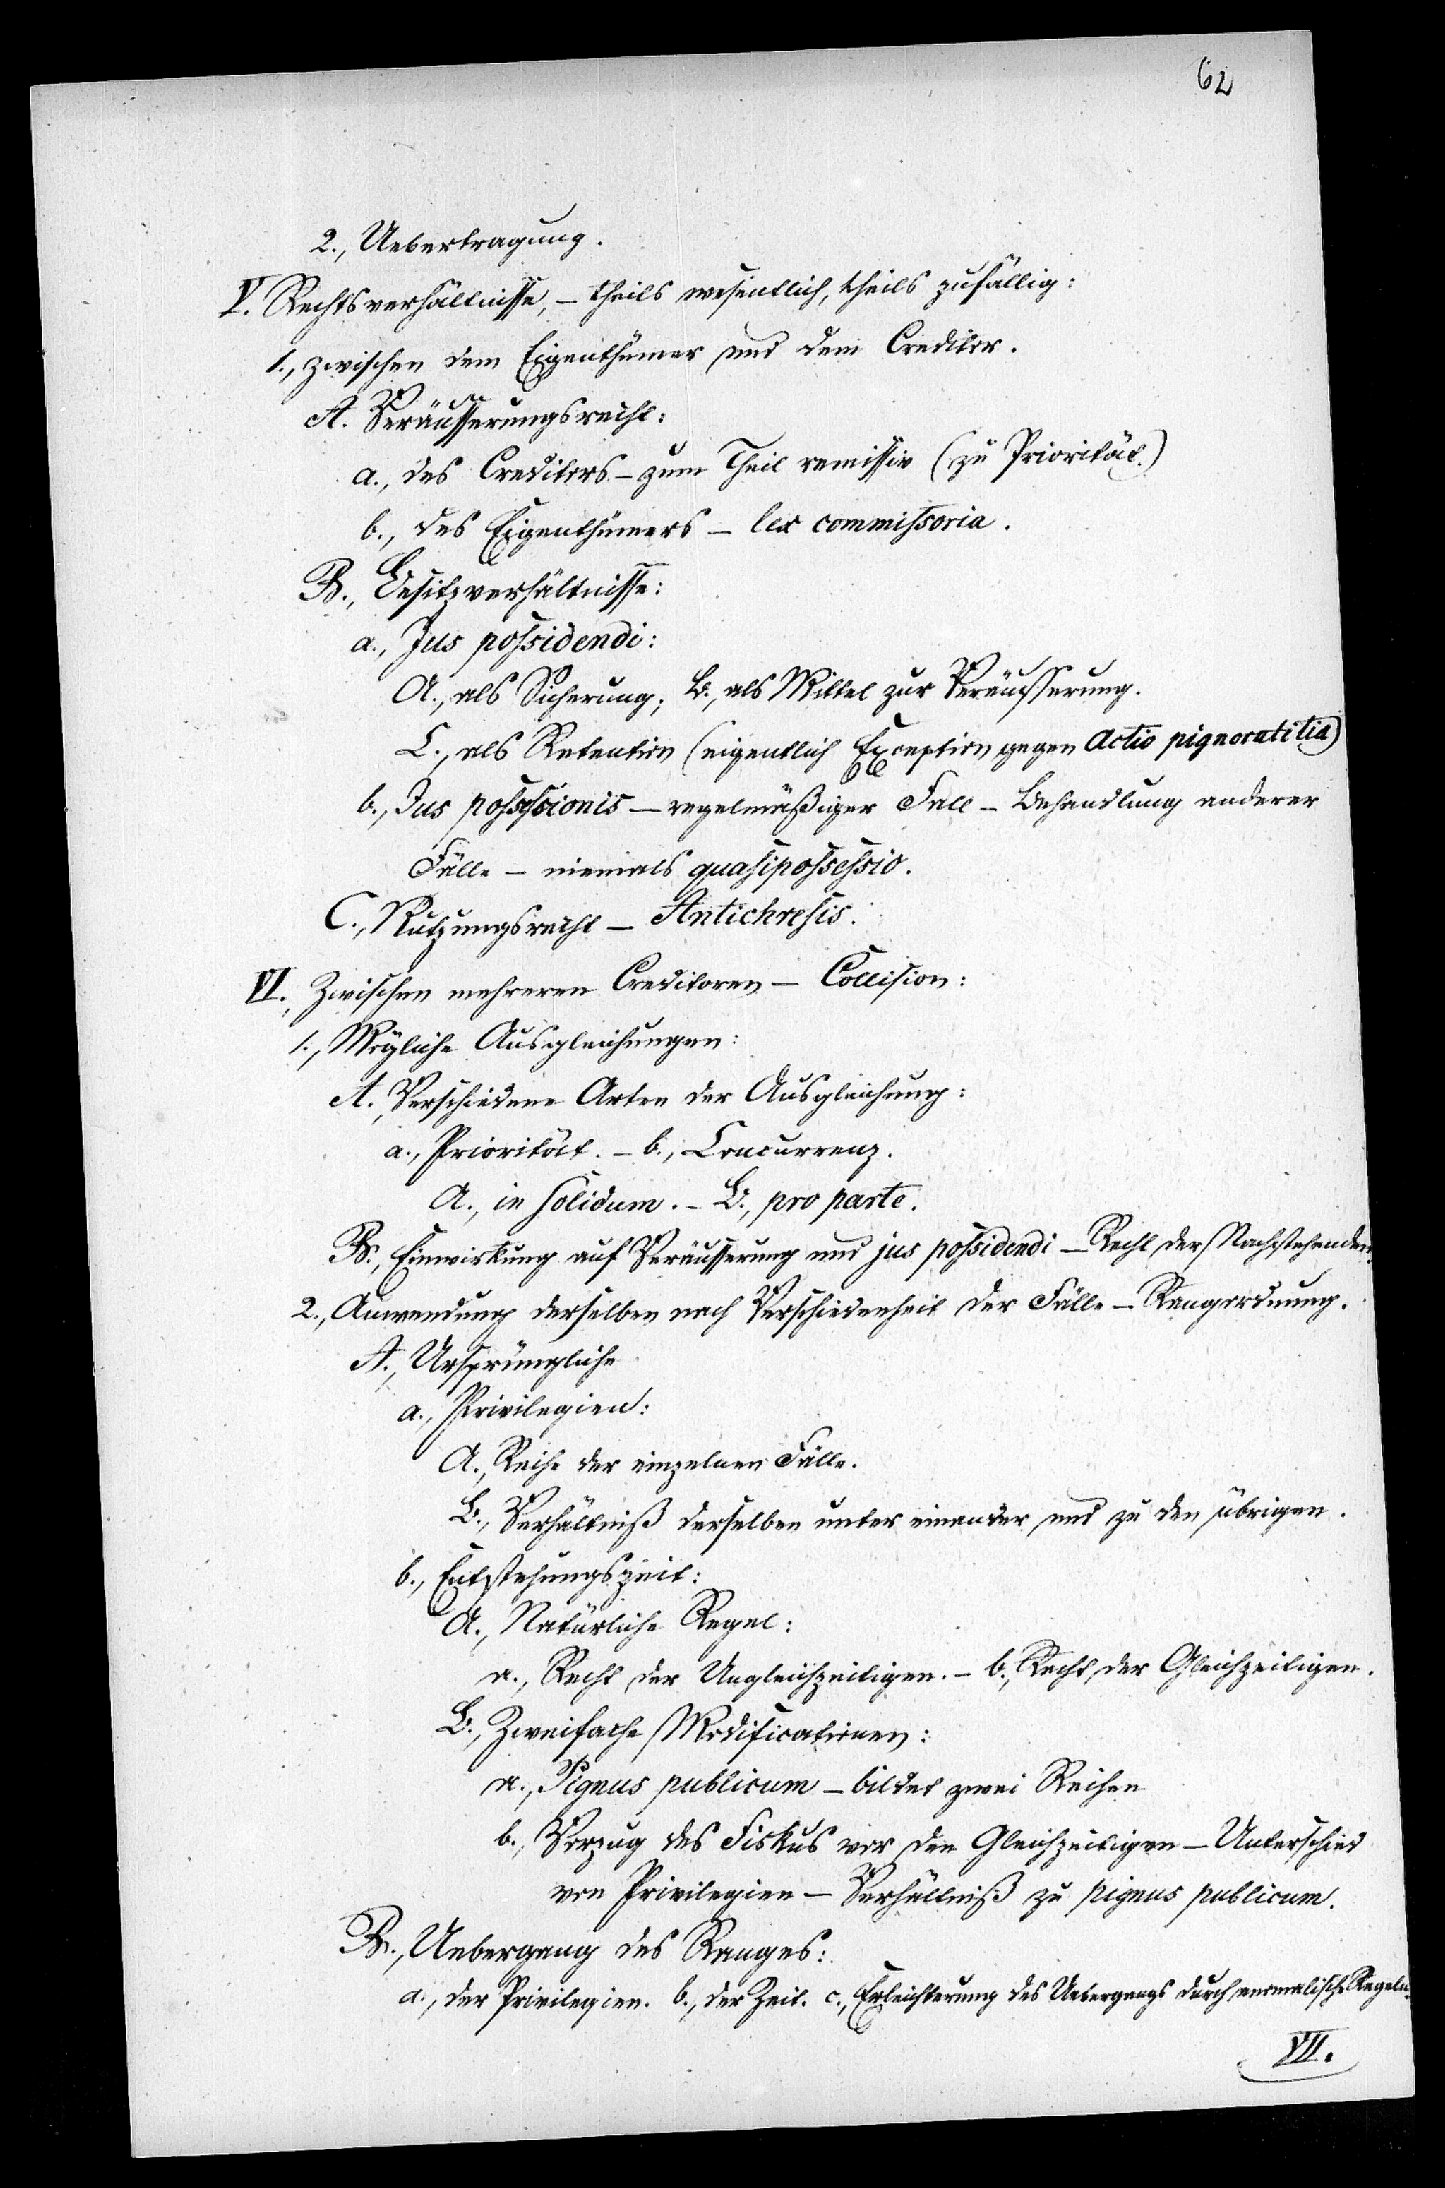 62
2., Uebertragung.
V. Rechtsverhältnisse, – theils wesentlich, theils zufällig:
1., zwischen dem Eigenthümer und dem Creditor.
A. Veräusserungsrecht:
a., des Creditors – zum Theil remissiv (zu Priorität.)
b., des Eigenthümers – lex commissoria.
B., Besitzverhältnisse:
a., Jus possidendi:
A., als Sicherung; B., als Mittel zur Veräusserung.
C., als Retention (eigentlich Exception gegen Actio pignoratitia)
b., Jus possessionis – regelmäßiger Fall – Behandlung anderer
Fälle – niemals quasipossessio.
C., Nutzungsrecht – Antichresis.
VI., Zwischen mehreren Creditoren – Collision:
1., Mögliche Ausgleichungen:
A., Verschiedene Arten der Ausgleichung:
a., Priorität. – b., Concurrenz.
A., in solidum. – B., pro parte.
B., Einwirkung auf Veräusserung und jus possidendi – Recht der Nachstehenden.
2., Anwendung derselben nach Verschiedenheit der Fälle – Rangordnung.
A., Ursprüngliche
a., Privilegien:
A., Reihe der einzelnen Fälle.
B., Verhältniß derselben unter einander und zu den übrigen.
b., Entstehungszeit:
A., Natürliche Regel:
a., Recht der Ungleichzeitigen. – b., Recht der Gleichzeitigen.
B., Zweifache Modificationen:
a., Pignus publicum – bildet zwei Reihen
b., Vorzug des Fiskus vor den Gleichzeitigen – Unterschied
von Privilegien – Verhältniß zu pignus publicum.
B., Uebergang des Ranges:
a., der Privilegien. b., der Zeit. c., Erleichterung des Uebergangs durch anomalische Regeln.
VII.